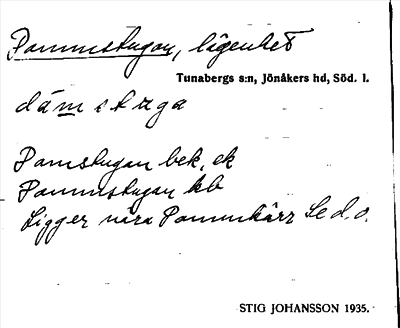 Dammstugan, lägenhet
Tunabergs s:n, Jönåkers hd, Söd. l.
dámstuga
Damstugan bek, ek
Dammstugan kb
Ligger nära Dammkärr Se d. o.
STIG JOHANSSON 1935.